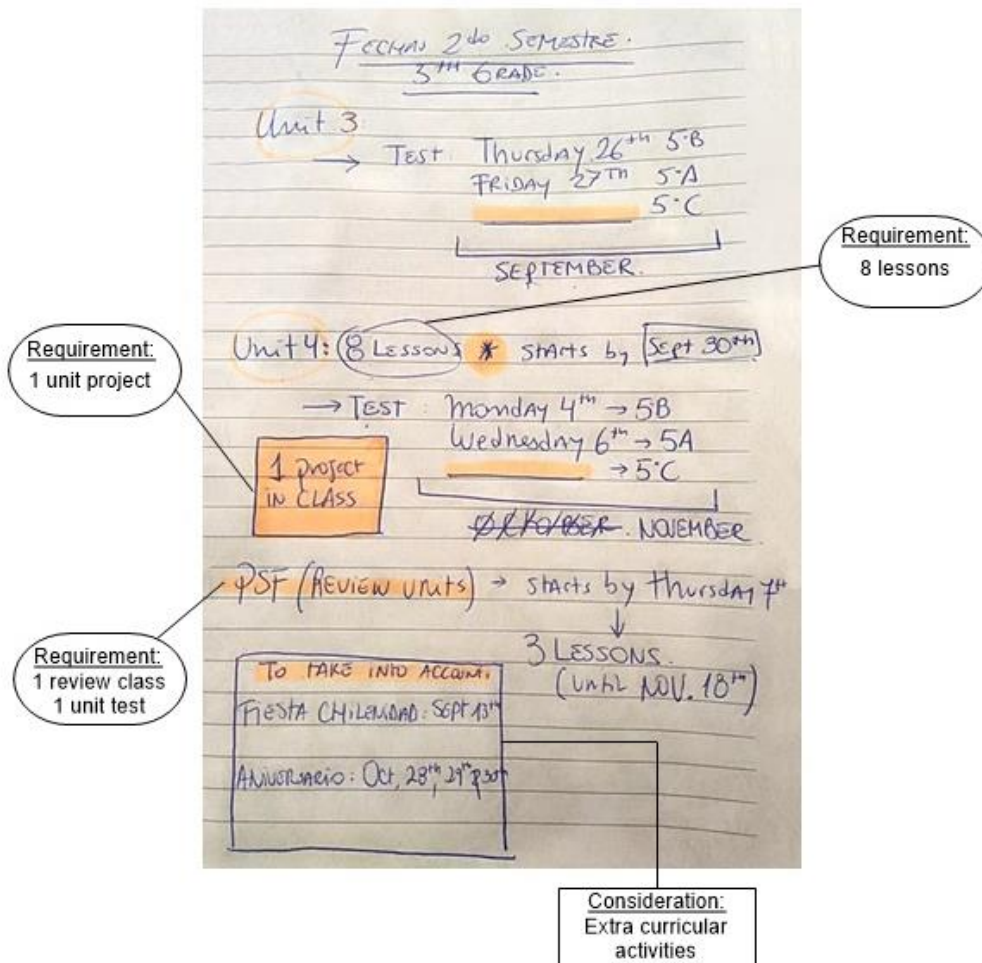 FECHAS 2do SEMESTRE.
5TH GRADE.
Unit 3
→ TEST: Thursday 26th 5°B
FRIDAY 27TH 5°A
5°C
SEPTEMBER.
Requirement:
8 lessons
Unit 4: 8 LESSONS * starts by Sept 30th
Requirement:
1 unit project
→ TEST: Monday 4th → 5B
Wednesday 6th → 5A
→ 5°C
1 project
IN CLASS
NOVEMBER
PSF (REVIEW UNITS) → starts by thursday 7th
↓
3 LESSONS.
(UNTIL NOV. 18th)
Requirement:
1 review class
1 unit test
TO TAKE INTO ACCOUNT:
FIESTA CHILENIDAD: SEPT 13th
ANIVERSARIO: Oct, 28th, 29th y 30th
Consideration:
Extra curricular
activities